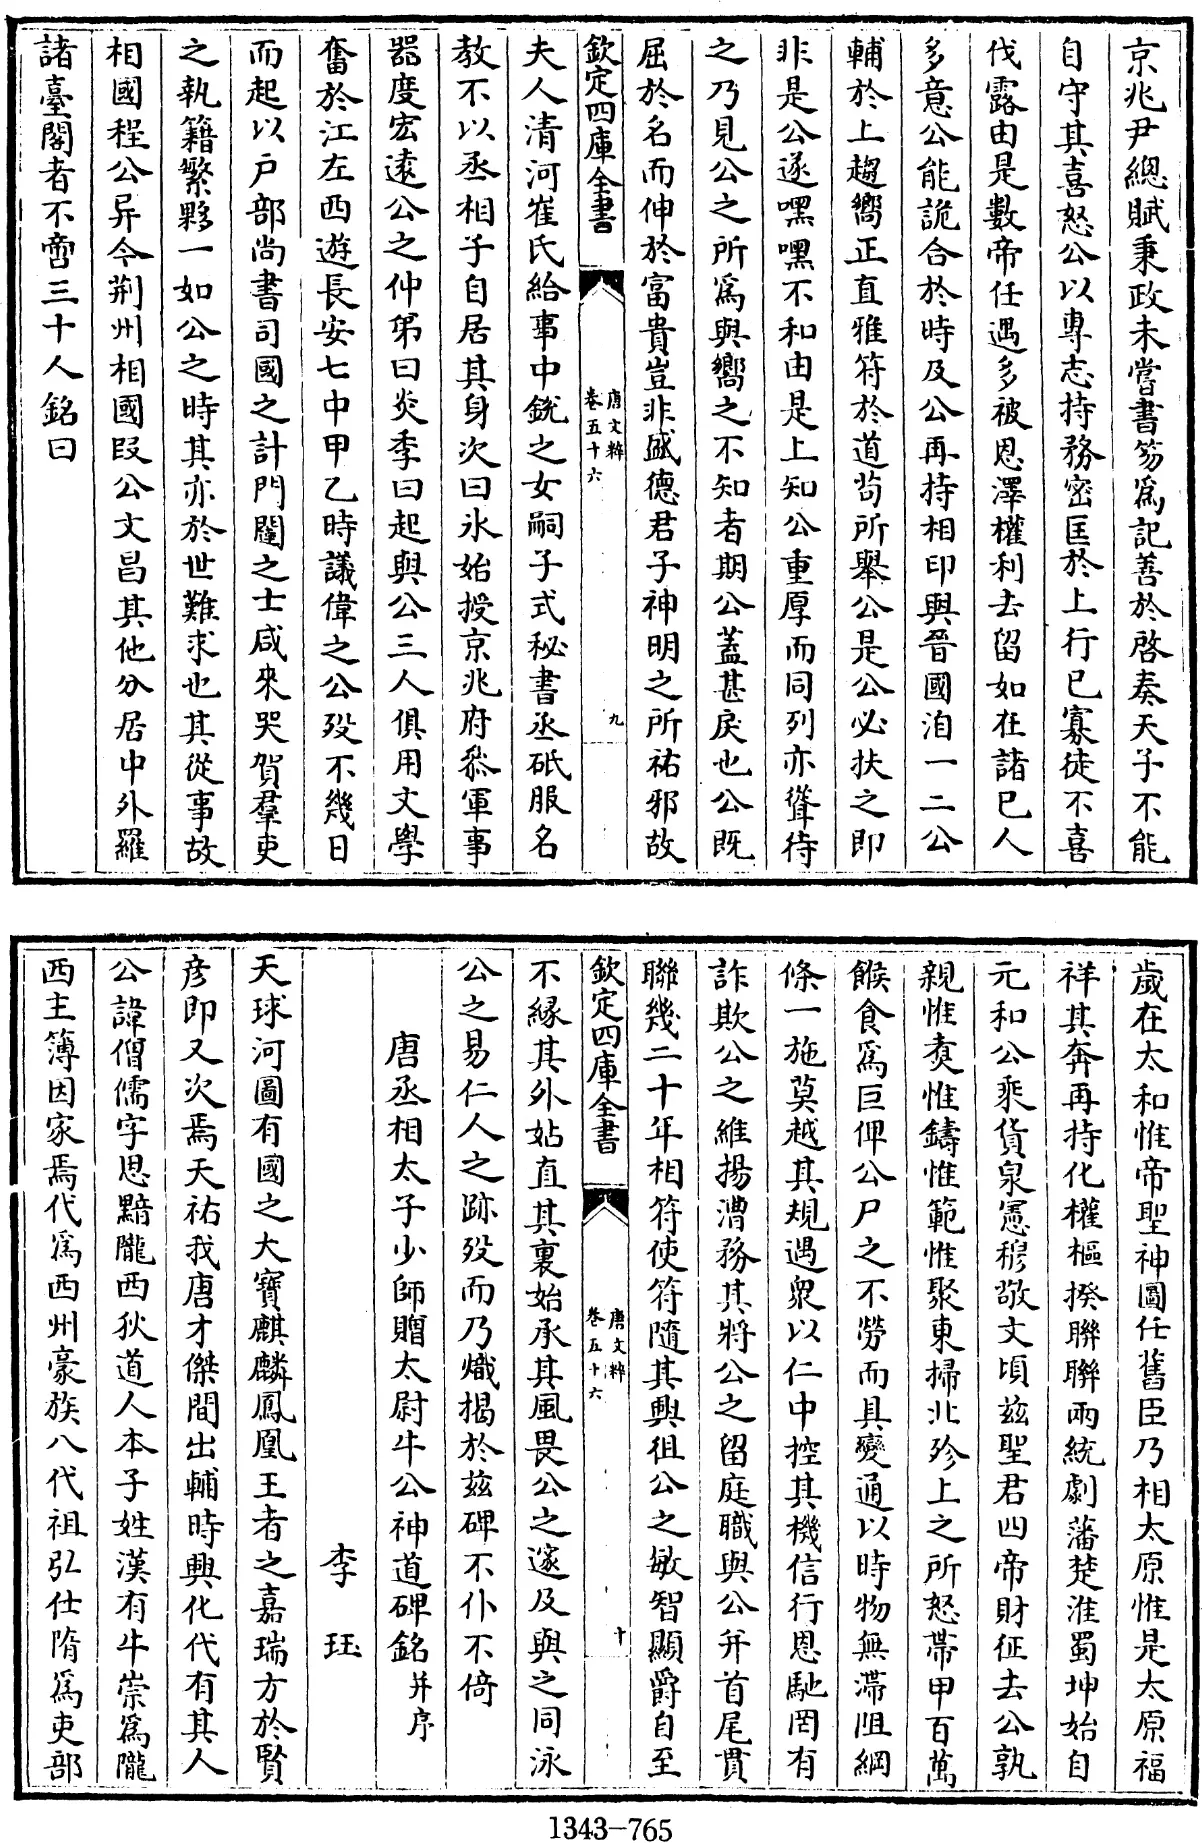 京兆尹總賦秉政未嘗書笏爲記善於啓奏天子不能
自守其喜怒公以專志持務密匡於上行已寡徒不喜
伐露由是數帝任遇多被恩澤權利去留如在諸已人
多意公能詭合於時及公再持相印與晉國洎一二公
輔於上趨嚮正直雅符於道苟所舉公是公必扶之即
非是公遂嘿嘿不和由是上知公重厚而同列亦聳待
之乃見公之所爲與嚮之不知者期公蓋甚戾也公既
屈於名而伸於富貴豈非盛德君子神明之所祐邪故
欽定四庫全書
唐文粹
卷五十六
九
夫人清河崔氏給事中銳之女嗣子式秘書丞砥服名
教不以丞相子自居其身次曰氷始授京兆府叅軍事
器度宏遠公之仲弟曰炎季曰起與公三人俱用文學
奮於江左西遊長安七中甲乙時議偉之公殁不幾日
而起以户部尚書司國之計門闈之士咸來哭賀羣吏
之執籍繁夥一如公之時其亦於世難求也其從事故
相國程公异今荆州相國段公文昌其他分居中外羅
諸臺閣者不啻三十人銘曰
歲在太和惟帝聖神圖任舊臣乃相太原惟是太原福
祥其奔再持化權樞揆聯聯兩統劇藩楚淮蜀坤始自
元和公乘貨泉憲穆敬文頃兹聖君四帝財征去公孰
親惟賁惟鑄惟範惟聚東掃北殄上之所怒帶甲百萬
餱食爲巨俾公尸之不勞而具變通以時物無滯阻綱
條一施莫越其規遇衆以仁中控其機信行恩馳罔有
詐欺公之維揚漕務其將公之留庭職與公并首尾貫
聯幾二十年相符使符隨其興徂公之敏智顯爵自至
欽定四庫全書
唐文粹
卷五十六
十
不緣其外姑直其裏始承其風畏公之邃及與之同泳
公之易仁人之跡殁而乃熾揭於兹碑不仆不倚
唐丞相太子少師贈太尉牛公神道碑銘并序
李珏
天球河圖有國之大寶麒麟鳳凰王者之嘉瑞方於賢
彦即又次焉天祐我唐才傑間出輔時興化代有其人
公諱僧儒字思黯隴西狄道人本子姓漢有牛崇爲隴
西主簿因家焉代爲西州豪族八代祖弘仕隋爲吏部
1343-765